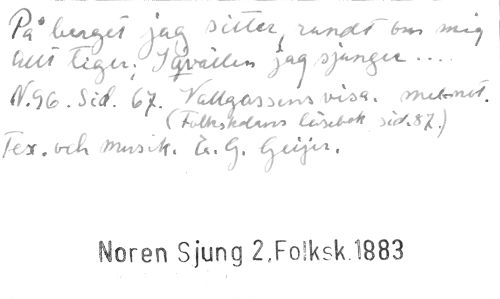 På berget jag sitter, rundt om mig
allt tiger; I qvällen jag sjunger ....
N.96. Sid. 67. Vallgossens visa. mel-not.
(Folkskolans läsebok sid. 87.)
Tex. och musik. E. G. Geijer.
Noren Sjung 2,Folksk.1883